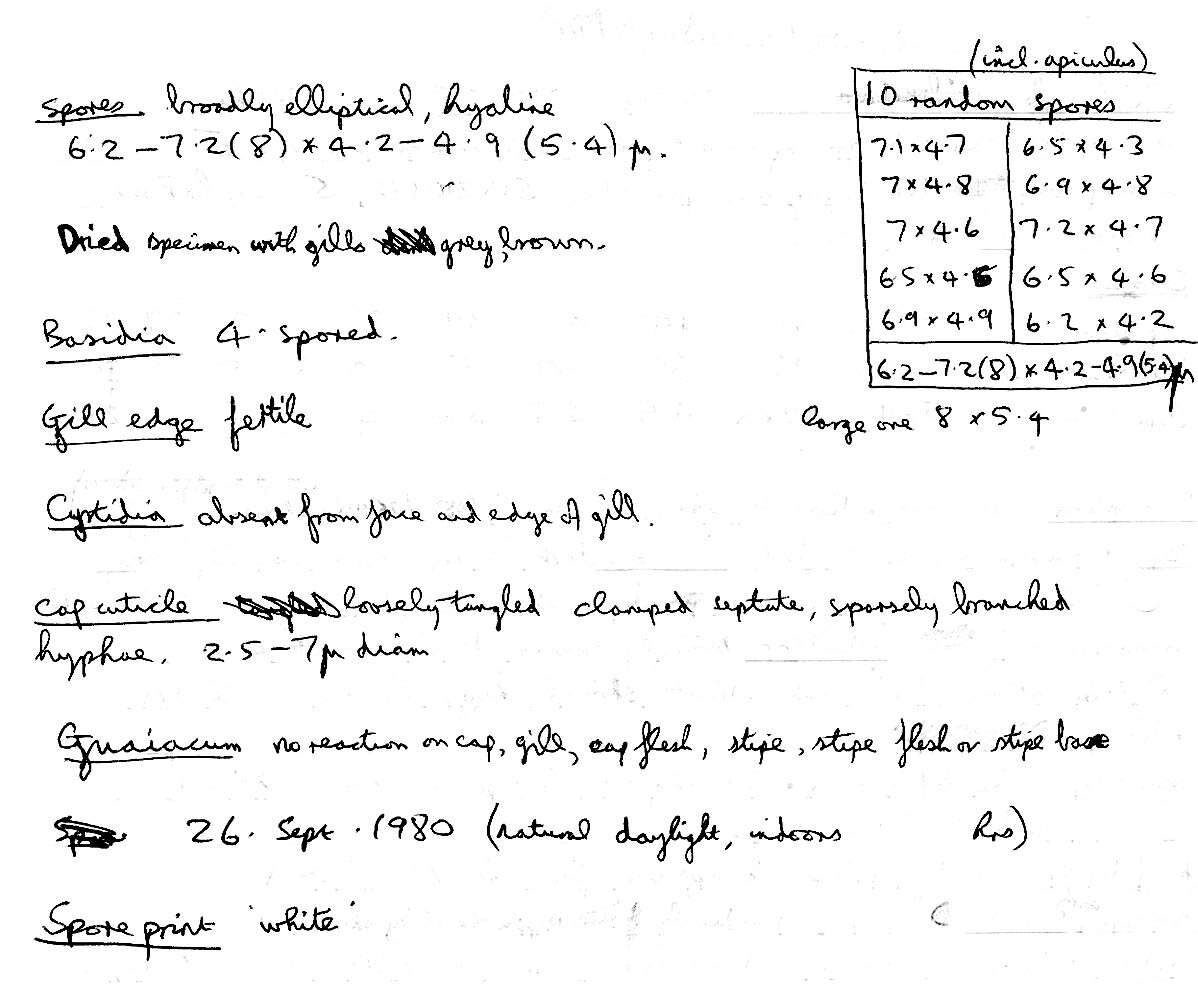 Spores broadly elliptical, hyaline
6.2–7.2(8) × 4.2–4.9 (5.4) µ.
Dried specimen with gills grey brown.
Basidia 4-spored.
Gill edge fertile
Cystidia absent from face and edge of gill.
(incl. apiculus)
10 random spores
7.1 × 4.7 6.5 × 4.3
7 × 4.8 6.9 × 4.8
7 × 4.6 7.2 × 4.7
6.5 × 4.5 6.5 × 4.6
6.9 × 4.9 6.2 × 4.2
6.2–7.2(8) × 4.2–4.9(5.4)µ
large one 8 × 5.4
Cap cuticle loosely tangled clamped septate, sparsely branched
hyphae. 2.5–7µ diam
Guaiacum no reaction on cap, gill, cap flesh, stipe, stipe flesh or stipe base
26. Sept. 1980 (natural daylight, indoors
Spore print 'white'